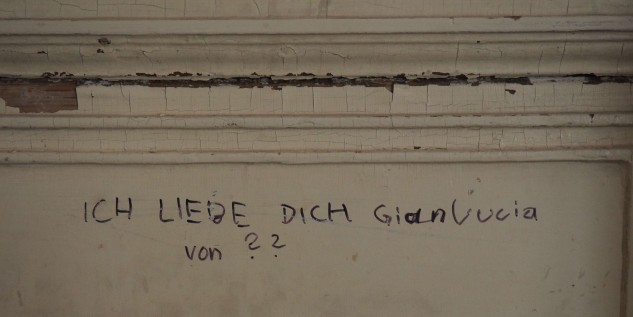 ICH LIEBE DICH Gianlucia
von ??